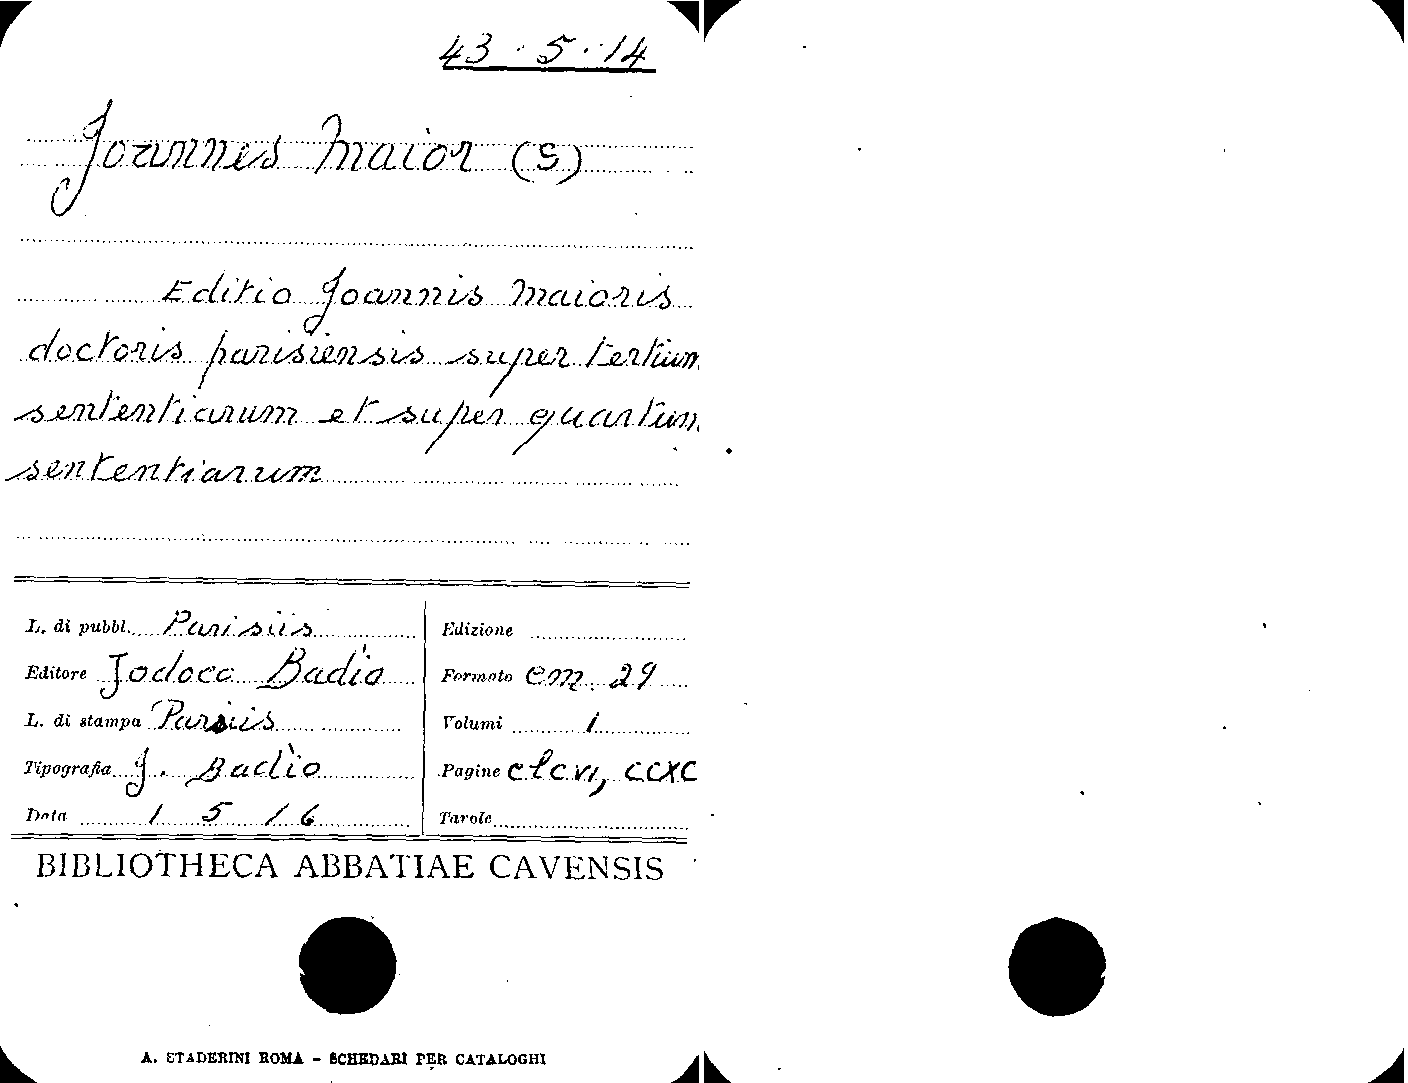 43 · 5 · 14
Joannes Maior (S)
Editio Joannis Maioris
doctoris parisiensis super tertium
sententiarum et super quartum
sententiarum
L. di pubbl. Parisiis
Editore Jodoco Badio
L. di stampa Parisiis
Tipografia J. Badio
Data 1516
Edizione
Formato cm. 29
Volumi 1
Pagine clcvi, ccxc
Tavole
BIBLIOTHECA ABBATIAE CAVENSIS
A. STADERINI ROMA - SCHEDARI PER CATALOGHI